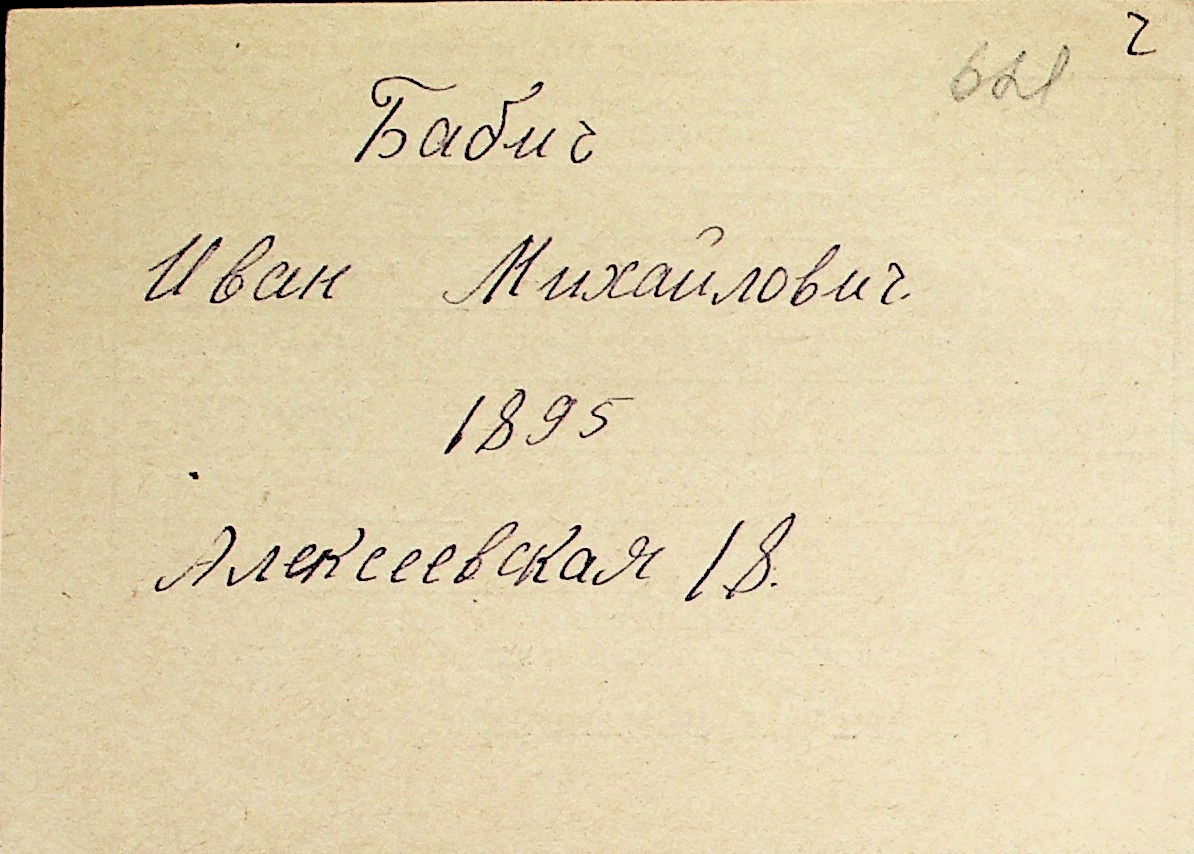 Бабич
Иван Михайлович.
1895
Алексеевская 18.